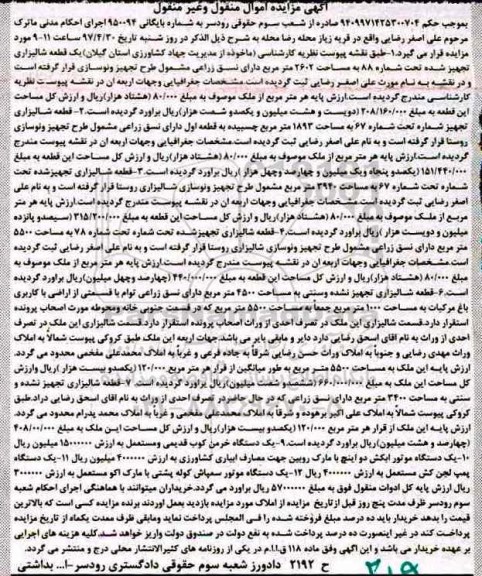 آگهی مزایده اموال منقول وغیر منقول
بموجب حکم ۹۴۰۹۹۷۱۴۲۵۳۰۰۷۰۴ صادره از شعب سوم حقوقی رودسر به شماره بایگانی ۹۵۰۰۹۴ اجرای احکام مدنی ماترک
مرحوم علی اصغر رضایی واقع در قریه زیاز محله رضا محله به شرح ذیل الذکر در روز شنبه تاریخ ۹۷/۴/۳۰ ساعت ۱۱-۹ مورد
مزایده قرار می گیرد.۱-طبق نقشه پیوست نظریه کارشناسی (ماخوذه از مدیریت جهاد کشاورزی استان گیلان)یک قطعه شالیزاری
تجهیز شده تحت شماره ۸۸ به مساحت ۲۶۰۲ متر مربع دارای نسق زراعی مشمول طرح تجهیز ونوسازی قرار گرفته است
و در نقشه به نام مورث علی اصغر رضایی ثبت گردیده است.مشخصات جغرافیایی وجهات اربعه ان در نقشه پیوست نظریه
کارشناسی مندرج گردیده است.ارزش پایه هر متر مربع از ملک موصوف به مبلغ ۸۰/۰۰۰ (هشتاد هزار)ریال و ارزش کل مساحت
این قطعه به مبلغ ۲۰۸/۱۶۰/۰۰۰ (دویست و هشت میلیون و یکصدو شصت هزار)ریال براورد گردیده است.۲-قطعه شالیزاری
تجهیز شماره تحت شماره ۶۷ به مساحت ۱۸۹۳ متر مربع چسبیده به قطعه اول دارای نسق زراعی مشمول طرح تجهیز ونوسازی
روستا قرار گرفته است و به نام علی اصغر رضایی ثبت گردیده است.مشخصات جغرافیایی وجهات اربعه ان در نقشه پیوست مندرج
گردیده است.ارزش پایه هر متر مربع از ملک موصوف به مبلغ ۸۰/۰۰۰ (هشتاد هزار)ریال و ارزش کل مساحت این قطعه به مبلغ
۱۵۱/۴۴۰/۰۰۰ (یکصدو پنجاه ویک میلیون و چهارصد وچهل هزار )ریال براورد گردیده است.۳-قطعه شالیزاری تجهیزشده تحت
شماره تحت شماره ۶۷ به مساحت ۳۹۴۰ متر مربع مشمول طرح تجهیز ونوسازی شالیزاری روستا قرار گرفته است و به نام علی
اصغر رضایی ثبت گردیده است.مشخصات جغرافیایی وجهات اربعه ان در نقشه پیوست مندرج گردیده است.ارزش پایه هر متر
مربع از ملک موصوف به مبلغ ۸۰/۰۰۰ (هشتاد هزار)ریال و ارزش کل مساحت این قطعه به مبلغ ۳۱۵/۲۰۰/۰۰۰ (سیصدو پانزده
میلیون و دویست هزار )ریال براورد گردیده است.۴-قطعه شالیزاری تجهیزشده تحت شماره تحت شماره ۷۸ به مساحت ۵۵۰۰
متر مربع دارای نسق زراعی مشمول طرح تجهیز ونوسازی شالیزاری روستا قرار گرفته است و به نام علی اصغر رضایی ثبت گردیده
است مشخصات جغرافیایی وجهات اربعه ان در نقشه پیوست مندرج گردیده است.ارزش پایه هر متر مربع از ملک موصوف به
مبلغ ۸۰/۰۰۰ (هشتاد هزار)ریال و ارزش کل مساحت این قطعه به مبلغ ۴۴۰/۰۰۰/۰۰۰ (چهارصد وچهل میلیون)ریال براورد گردیده
است.۶-قطعه شالیزاری تجهیز نشده وسنتی به مساحت ۴۵۰۰ متر مربع دارای نسق زراعی توام با قسمتی از اراضی با کاربری
باغ مرکبات به مساحت ۱۰۰۰ متر مربع جمعا به مساحت ۵۵۰۰ متر مربع که در ضلع جنوبی خانه ومحوطه مورث اصحاب پرونده
استقرار دارد.قسمت شالیزاری این ملک در تصرف احدی از وراث اصحاب پرونده استقرار دارد.قسمت شالیزاری این ملک در تصرف
احدی از وراث به نام اقای اسحق رضایی دارد دایر و مابقی بایر می باشد.جهات اربعه این ملک طبق کروکی پیوست شمالا به املاک
وراث مهدی رضایی و جنوباً به املاک وراث حسن رضایی شرقاً به جاده فرعی و غرباً به املاک محمدعلی مفخمی محدود می گردد.
ارزش پایه این ملک به مساحت ۵۵۰۰ متر مربع به طور میانگین از قرار هر متر مربع ۱۲۰/۰۰۰ (یکصدو بیست هزار )ریال وارزش
کل مساحت این ملک به مبلغ ۶۶۰/۰۰۰/۰۰۰ (ششصدو شصت میلیون)ریال براورد گردیده است.۷-قطعه شالیزاری تجهیز نشده و
سنتی به مساحت ۳۴۰۰ متر دارای نسق زراعی که در حال حاضردر تصرف احدی از وراث به نام اقای اسحق رضایی دراد.طبق
کروکی پیوست شمالاً به املاک علی اکبر برهوده و شرقاً به املاک محمدعلی مفخمی و غرباً به املاک محمد پدرام محدود می گردد.
ارزش پایه این ملک از قرار هر متر مربع ۱۲۰/۰۰۰ (یکصدو بیست هزار)ریال و ارزش کل مساحت این ملک به مبلغ ۴۰۸/۰۰۰/۰۰۰
(چهارصد و هشت میلیون)ریال براورد گردیده است.۹-یک دستگاه خرمن کوب قدیمی ومستعمل به ارزش ۱۵۰۰۰۰۰۰ میلیون ریال
۱۰-یک دستگاه موتور ابکش دو اینچ با مارک روبین جهت مصارف ابیاری کشاورزی به ارزش ۴۰۰۰۰۰۰ میلیون ریال ۱۱-یک دستگاه
پمپ لجن کش مستعمل به ارزش ۴۰۰۰۰۰۰ ریال ۱۲-یک دستگاه موتور سمپاش کوله پشتی با مارک اکو مستعمل به ارزش ۳۰۰۰۰۰۰
ریال ارزش پایه کل ادوات منقول فوق به مبلغ ۵۷۰۰۰۰۰۰ ریال براورد می گردد.خریداران میتوانند با هماهنگی اجرای احکام شعبه
سوم رودسر ظرف مدت پنج روز قبل ازتاریخ مزایده از املاک مورد مزایده بازدید بعمل اوردند برنده مزایده کسی است که بالاترین
قیمت را بدهد خریدار باید ده درصد مبلغ فروخته شده را فی المجلس پرداخت نماید ومابقی ظرف مدت یکماه از تاریخ مزایده
پرداخت کند در غیر اینصورت ده درصد پرداخت شده به نفع دولت در صندوق دولت واریز خواهد شد.کلیه هزینه های اجرایی
بر عهده خریدار می باشد و این آگهی وفق ماده ۱۱۸ ق.ا.ا.م در یکی از روزنامه های کثیرالانتشار محلی درج و منتشر می گردد.
ح ۲۱۹۲ دادورز شعبه سوم حقوقی دادگستری رودسر-ا... بداشتی